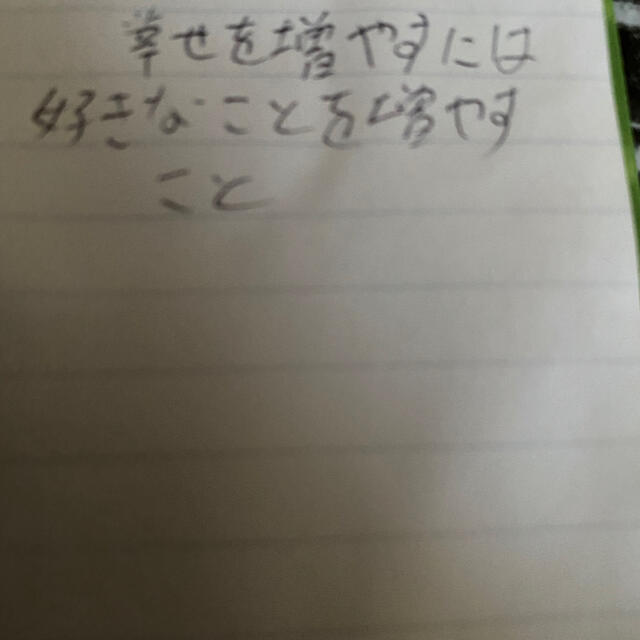 幸せを増やすには
好きなことを増やす
こと